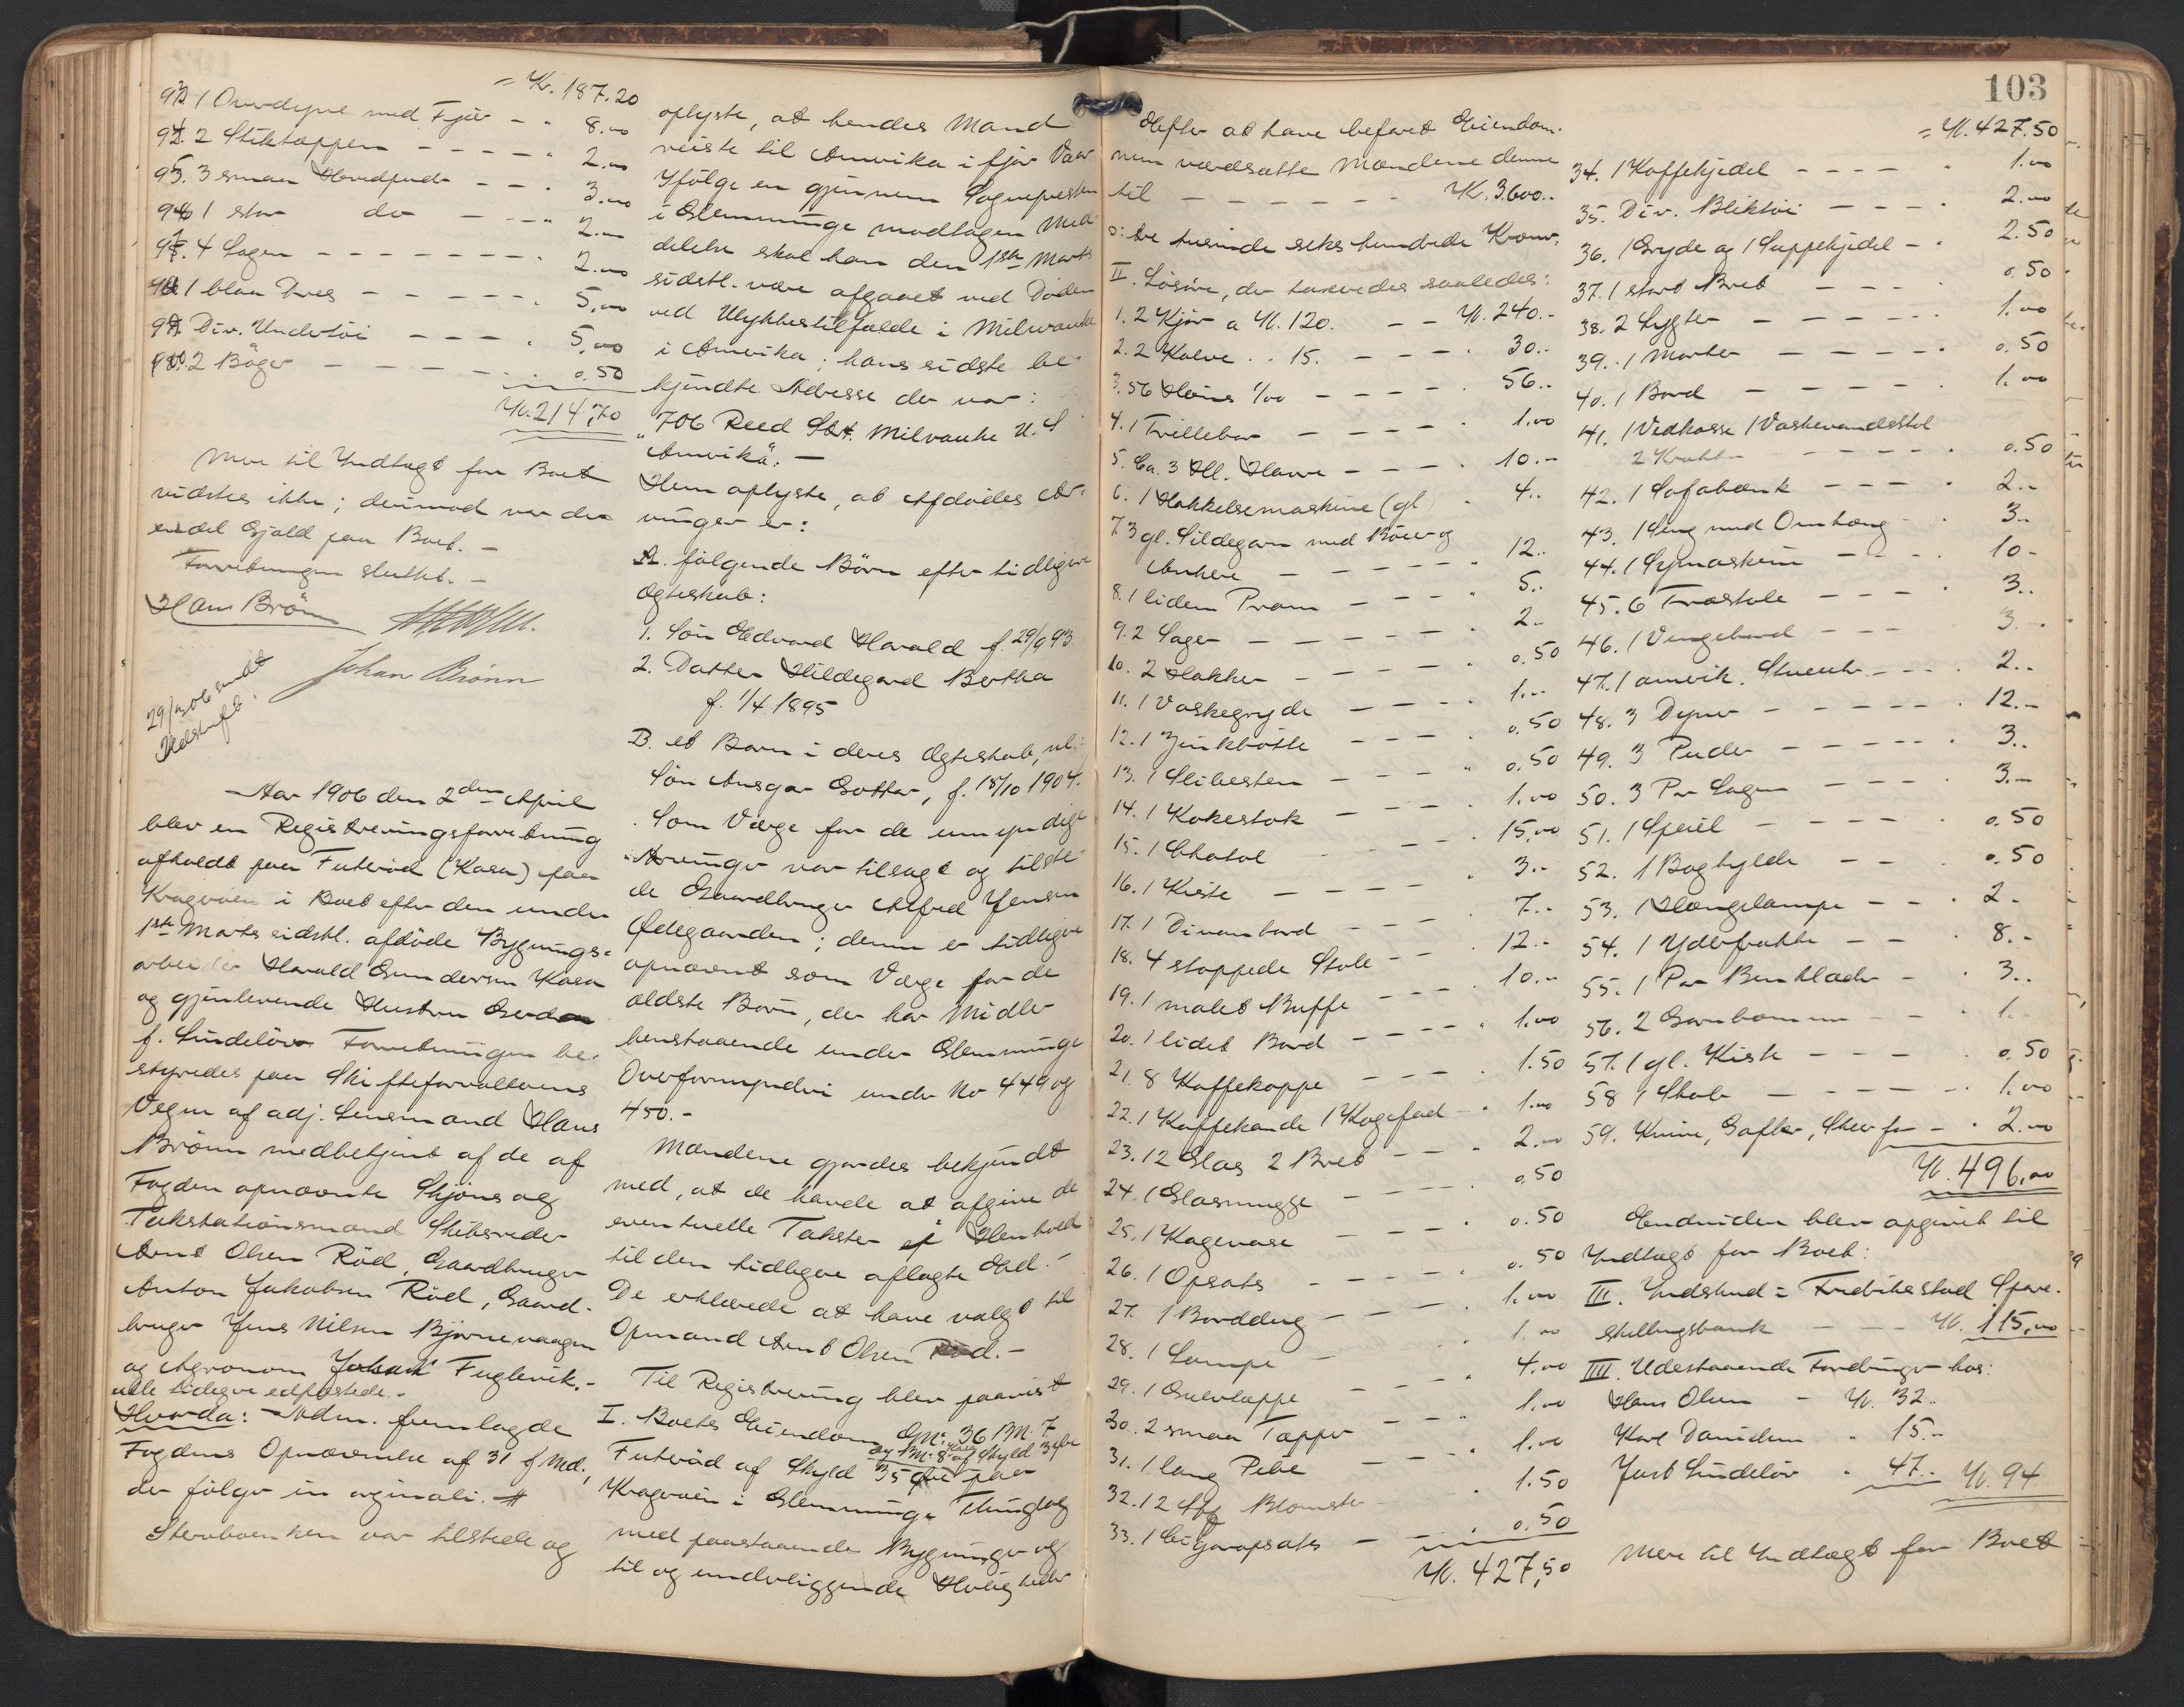 = Kr. 187.20
93 1 Overdyne med Fjær - " 8.00
94. 2 Stiktæpper - - - - - " 2.00
95. 3 smaa Hovedpuder - - " 3.00
96 1 stor do - - - " 2.00
97. 4 Lagen - - - - - - - " 2.00
98 1 blaa Dres - - - - - " 5.00
99. Div. Undertöi - - - - " 5.00
100. 2 Böger - - - - - - " 0.50
Kr. 214,70
Mere til Indtægt for Boet
vidstes ikke; derimod var der
endel Gjæld paa Boet. -
Forretningen sluttet. -
Hans Brönn
Johan Brönn
29/3 06 sendt
Udskrift.
Aar 1906 den 2den April
blev en Registreringsforretning
afholdt paa Futeröd (Kasa) paa
Kragerøen i Boet efter den under
1ste Marts sidstl. afdöde Bygnings-
arbeider Harald Gundersen Kasa
og gjenlevende Hustru Gerda
f. Lindelöv. Forretningen be-
styredes paa Skifteforvalterens
Vegne af adj. Lensmand Hans
Brönn medbetjent af de af
Fogden opnævnte Skjöns og
Takstationsmænd Skibsreder
Arnt Olsen Röd, Gaardbruger
Anton Jakobsen Röd, Gaard-
bruger Jens Nilsen Bjørnevaagen
og Agronom Johan Fuglevik. -
alle tidligere edfæstede. -
Hvorda: - Adm. fremlagde
Fogdens Opnævnelse af 31 f. Md.,
der fölger in orginali. #
Stervboenken var tilstede og
oplyste, at hendes Mand
reiste til Amerika i fjor Vaar.
Ifölge en gjennem Sognepresten
i Glemminge modtagen Med-
delelse skal han den 1ste Marts
sidstl. være afgaaet ved Döden
ved Ulykkestilfælde i Milwauke
i Amerika; hans sidste be-
kjendte Adresse der var:
"706 Reed Str. Milvauke U. S
Amerika". -
Hun oplyste, at Afdödes Ar-
vinger er:
A. følgende Börn efter tidligere
Ægteskab:
1. Sön Edvard Harald f. 29/9 93
2. Datter Hildegard Bertha
f. 1/4 1895
B. et Barn i deres Ægteskab, nl:
Sön Ansgar Gottar, f. 15/10 1904.
Som Værge for de umyndige
Arvinger var tilsagt og tilste-
de Gaardbruger Alfred Jensen
Ødegaarden; denne er tidligere
opnævnt som Værge for de
ældste Börn, der har Midler
henstaaende under Glemminge
Overformynderi under No 449 og
450. -
Mændene gjordes bekjendt
med, at de havde at afgive de
eventuelle Takster i Henhold
til den tidligere aflagte Ed. -
De erklærede at have valgt til
Opmand Arnt Olsen Röd. -
Til Registrering blev paavist
I. Boets Eiendom Gr. 36 Br. 7
og Br. 8 af Skyld 3 öre
Futeröd af Skyld 35 öre paa
Kragerøen i Glemminge Thinglag
med paastaaende Bygninger og
til og underliggende Herligheder
103
Efter at have befaret Eiendom-
men værdsatte Mændene denne
til - - - - - - Kr. 3600.-
o: tre tusinde seks hundrede Kroner.
II. Lösöre, der taxeredes saaledes:
1. 2 Kjör a Kr. 120. - - Kr. 240.-
2. 2 Kalve " " 15. - - - " 30.-
3. 56 Höns 1/00 - - - - " 56.-
4. 1 Trillebør - - - - - " 1.00
5. Ca. 3 Hl. Havre - - - " 10.-
6. 1 Hakkelsemaskine (gl. " 4.-
7. 3 gl. Sildegarn med Böier og
Ankere - - - - - - " 12.-
8. 1 liden Pram - - - - " 5.-
9. 2 Sager - - - - - - " 2.-
10. 2 Hakker - - - - - " 0.50
11. 1 Vaskegryde - - - - " 1.-
12. 1 Zinkbötte - - - - " 0.50
13. 1 Slibesten - - - - " 0.50
14. 1 Kakestok - - - - " 1.00
15. 1 Chatol - - - - " 15.00
16. 1 Kiste - - - - - " 3.-
17. 1 Divanbord - - - " 7.-
18. 4 stoppede Stole - - " 12.-
19. 1 malet Buffe - - - " 10.-
20. 1 lidet Bord - - - - " 1.00
21. 8 Kaffekopper - - - - " 1.50
22. 1 Kaffekande 1 Kagefad - " 1.00
23. 12 Glas 2 Bret - - - " 2.00
24. 1 Glasmugge - - - - " 0.50
25. 1 Kagevase - - - - " 0.50
26. 1 Opsats - - - - - " 0.50
27. 1 Borddug - - - - " 1.00
28. 1 Lampe - " 1.00
29. 1 Gulvtæppe - - - - " 4.00
30. 2 smaa Tæpper - - - " 1.00
31. 1 lang Pibe - - - " 1.00
32. 12 Blomster " 1.50
33. 1 Cigaropsats - - " 0.50
Kr. 427,50
= Kr. 427.50
34. 1 Kaffekjedel - - - - " 1.00
35. Div. Bliktöi - - - - " 2.00
36. 1 Gryde og 1 Suppekjedel - " 2.50
37. 1 stort Bret - - - " 0.50
38. 2 Lygter - - - - - " 1.00
39. 1 Morter - - - - - " 0.50
40. 1 Bord - - - - - " 1.00
41. 1 Vedkasse 1 Vaskevandsstol
2 Krakker - - - - - " 0.50
42. 1 Sofabænk - - - - " 2.-
43. 1 Seng med Omhæng - " 3.-
44. 1 Symaskin - - - " 10-
45. 6 Træstole - - - " 3.-
46. 1 Vingebord - - - 3.-
47. 1 amerik. Stueuhr - - - " 2.-
48. 3 Dyner - - - - - - " 12.-
49. 3 Puder - - - - - " 3.-
50. 3 Par Lagen - - - - " 3.-
51. 1 Speil - - - - - " 0.50
52. 1 Boghylde - - - " 0.50
53. 1 Hængelampe - - - " 2-
54. 1 Yderfrakke - - - " 8.-
55. 1 Par Benklæder - " 3.-
56. 2 Garnbommer - - " 1.
57. 1 gl. Kiste - - - " 0.50
58 1 Skab - - - - - - " 1.00
59. Knive, Gafler, Skeer for - " 2.00
Kr. 496,00
Endvidere blev opgivet til
Indtægt for Boet:
III. Indskud i Fredrikstad Spare-
skillingsbank - - - Kr. 115,00
IIII. Udestaaende Fordringer hos:
Hans Olsen - Kr. 32.-
Karl Danielsen " 15.-
Just Lindelöv " 47.- Kr. 94
Mere til Indtægt for Boet